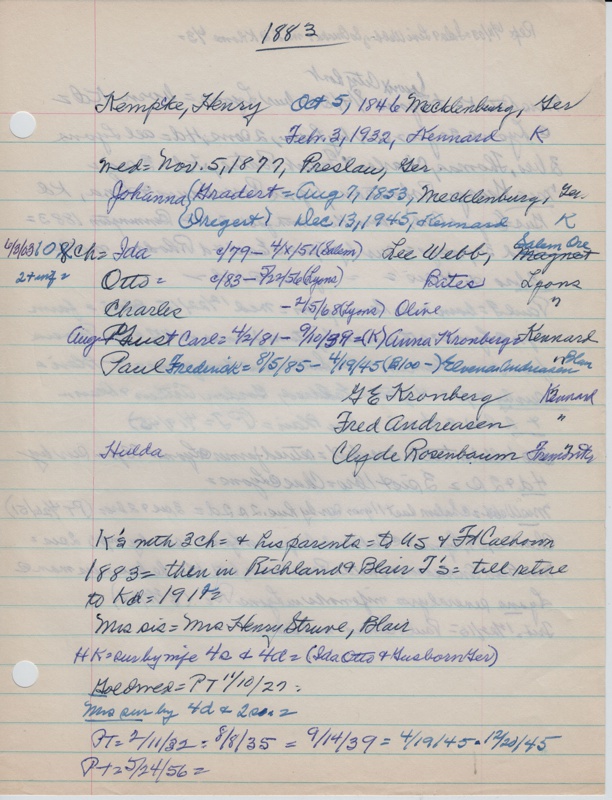 1883
Kempske, Henry Oct 5, 1846 Mecklenburg, Ger
Feb. 3, 1932, Kennard K
med = Nov. 5, 1877, Preslau, Ger
Johanna (Gradert = Aug 7, 1853, Mecklenburg, Ger.
(Dregert) Dec 13, 1945, Kennard K
6/3/63 ch = Ida c/79 - 4/x/51 (Salem) Lee Webb, Salem Ore Magnet
2 + wife = Otto = c/83 - 5/22/56 (Lyons) Bates Lyons
Charles - 2/5/68 (Lyons) Olive "
August Carl = 4/2/81 - 9/10/39 = (K) Anna Kronberg = Kennard
Paul Frederick = 8/5/85 - 4/19/45 (B100-) Emma Andreasen " Blair
G E Kronberg Kennard
Fred Andreasen "
Hulda Clyde Rosenbaum
K's with 3 ch = & his parents = to US & Ft Calhoun
1883 = then in Richland & Blair T's = till retire
to Kd = 1918
Mrs sis = Mrs Henry Struve, Blair
HK = sur by wife 4s & 4d = (Ida Otto & Gus born Ger)
Goldwed = PT 11/10/27 =
Mrs sur by 4d & 2son =
PT = 2/11/32 = 8/8/35 = 9/14/39 = 4/19/45 = 12/20/45
PT = 5/24/56 =